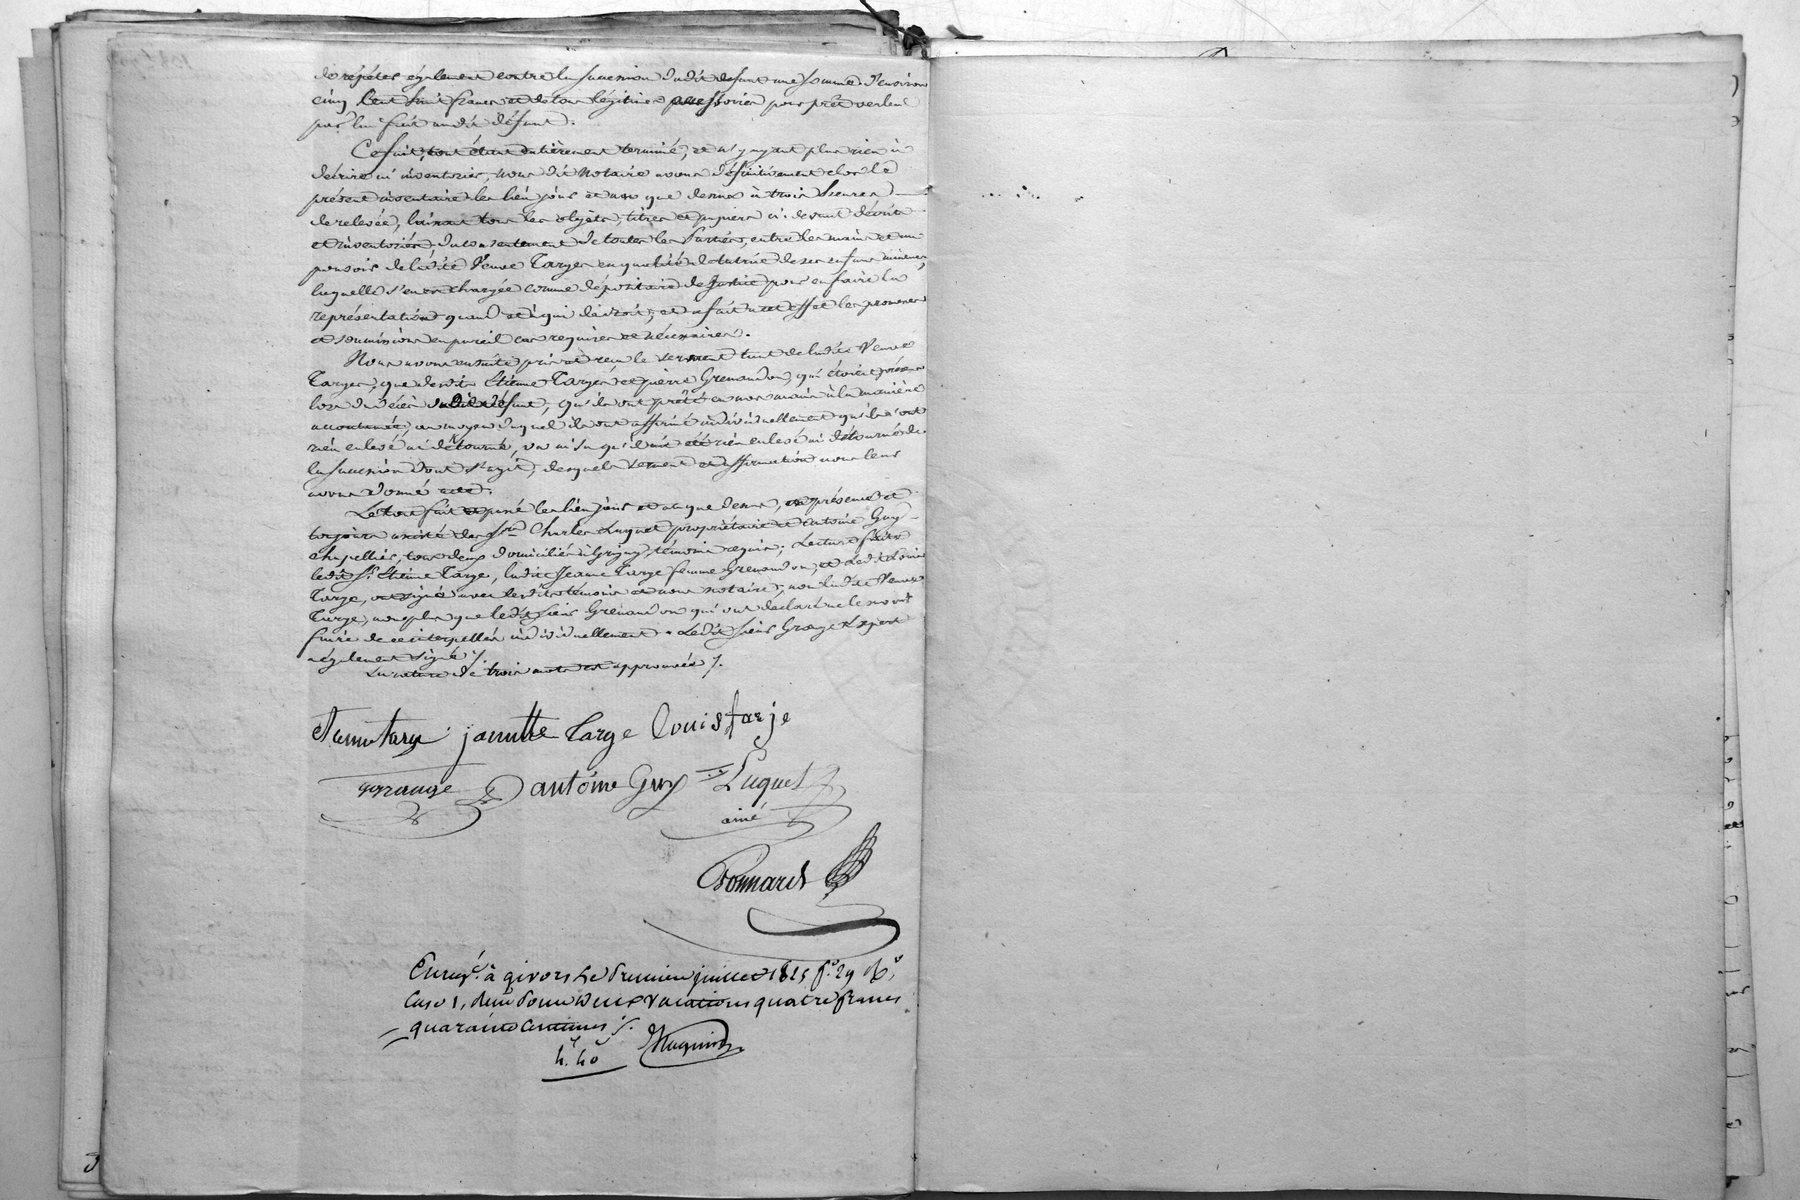 de répéter également contre la succession dudit défunt une somme d'environ
cinq cent huit francs et de tous légitimes accessoires pour prêt verbal
par lui fait audit défunt.
Ce fait, tout étant entièrement terminé, et n'y ayant plus rien à
décrire ni inventorier, nous dit notaire avons définitivement clos le
présent inventaire les lieu jour et an que dessus à trois heures
de relevée, laissant tous les objets, titres et papiers ci-devant décrits
et inventoriés du consentement de toutes les Parties, entre les mains et au
pouvoir de ladite Veuve Targe en qualité de tutrice de ses enfans mineurs,
laquelle s'en est chargée comme dépositaire de Justice pour en faire la
représentation quand et à qui de droit; et a fait à cet effet les promesses
et soumissions en pareil cas requises et nécessaires.
Nous avons ensuite pris et reçu le serment tant de ladite Veuve
Targe, que desdits Etienne Targe et pierre Grenaudon, qui étoient présens
lors du décès dudit défunt, qu'ils ont prêté en nos mains à la manière
accoutumée, au moyen duquel ils ont affirmé individuellement qu'ils n'ont
rien enlevé ni détourné, vu ni su qu'il ait été rien enlevé ni détourné de
la succession dont s'agit, desquels serment et affirmation nous leur
avons donné acte.
Le tout fait et passé les lieu jour et an que dessus, en présence et
toujours assisté des Srs Charles Luquet propriétaire et Antoine Guy
chapellier, tous deux domiciliés à Grigny, témoins requis; Lecture faite
ledit Sr. Etienne Targe, ladite Jeanne Targe femme Grenaudon, et Ledit Louis
Targe, ont signé avec lesdits témoins et nous notaire, non ladite Veuve
Targe, non plus que ledit Sieur Grenaudon qui ont déclaré ne le savoir
faire de ce interpellés individuellement. Ledit Sieur Grange Expert
a également signé /.
La rature de trois mots est approuvée /.
etienne targe janette Targe Louis tarje
grange antoine Guy Luquet
ainé
Bonnard
Enregé. à givors Le Premier juillet 1825 fo. 29 Ro.
Case 1, reçu Pour deux vacations quatre francs
quarante centimes /.
4. 40